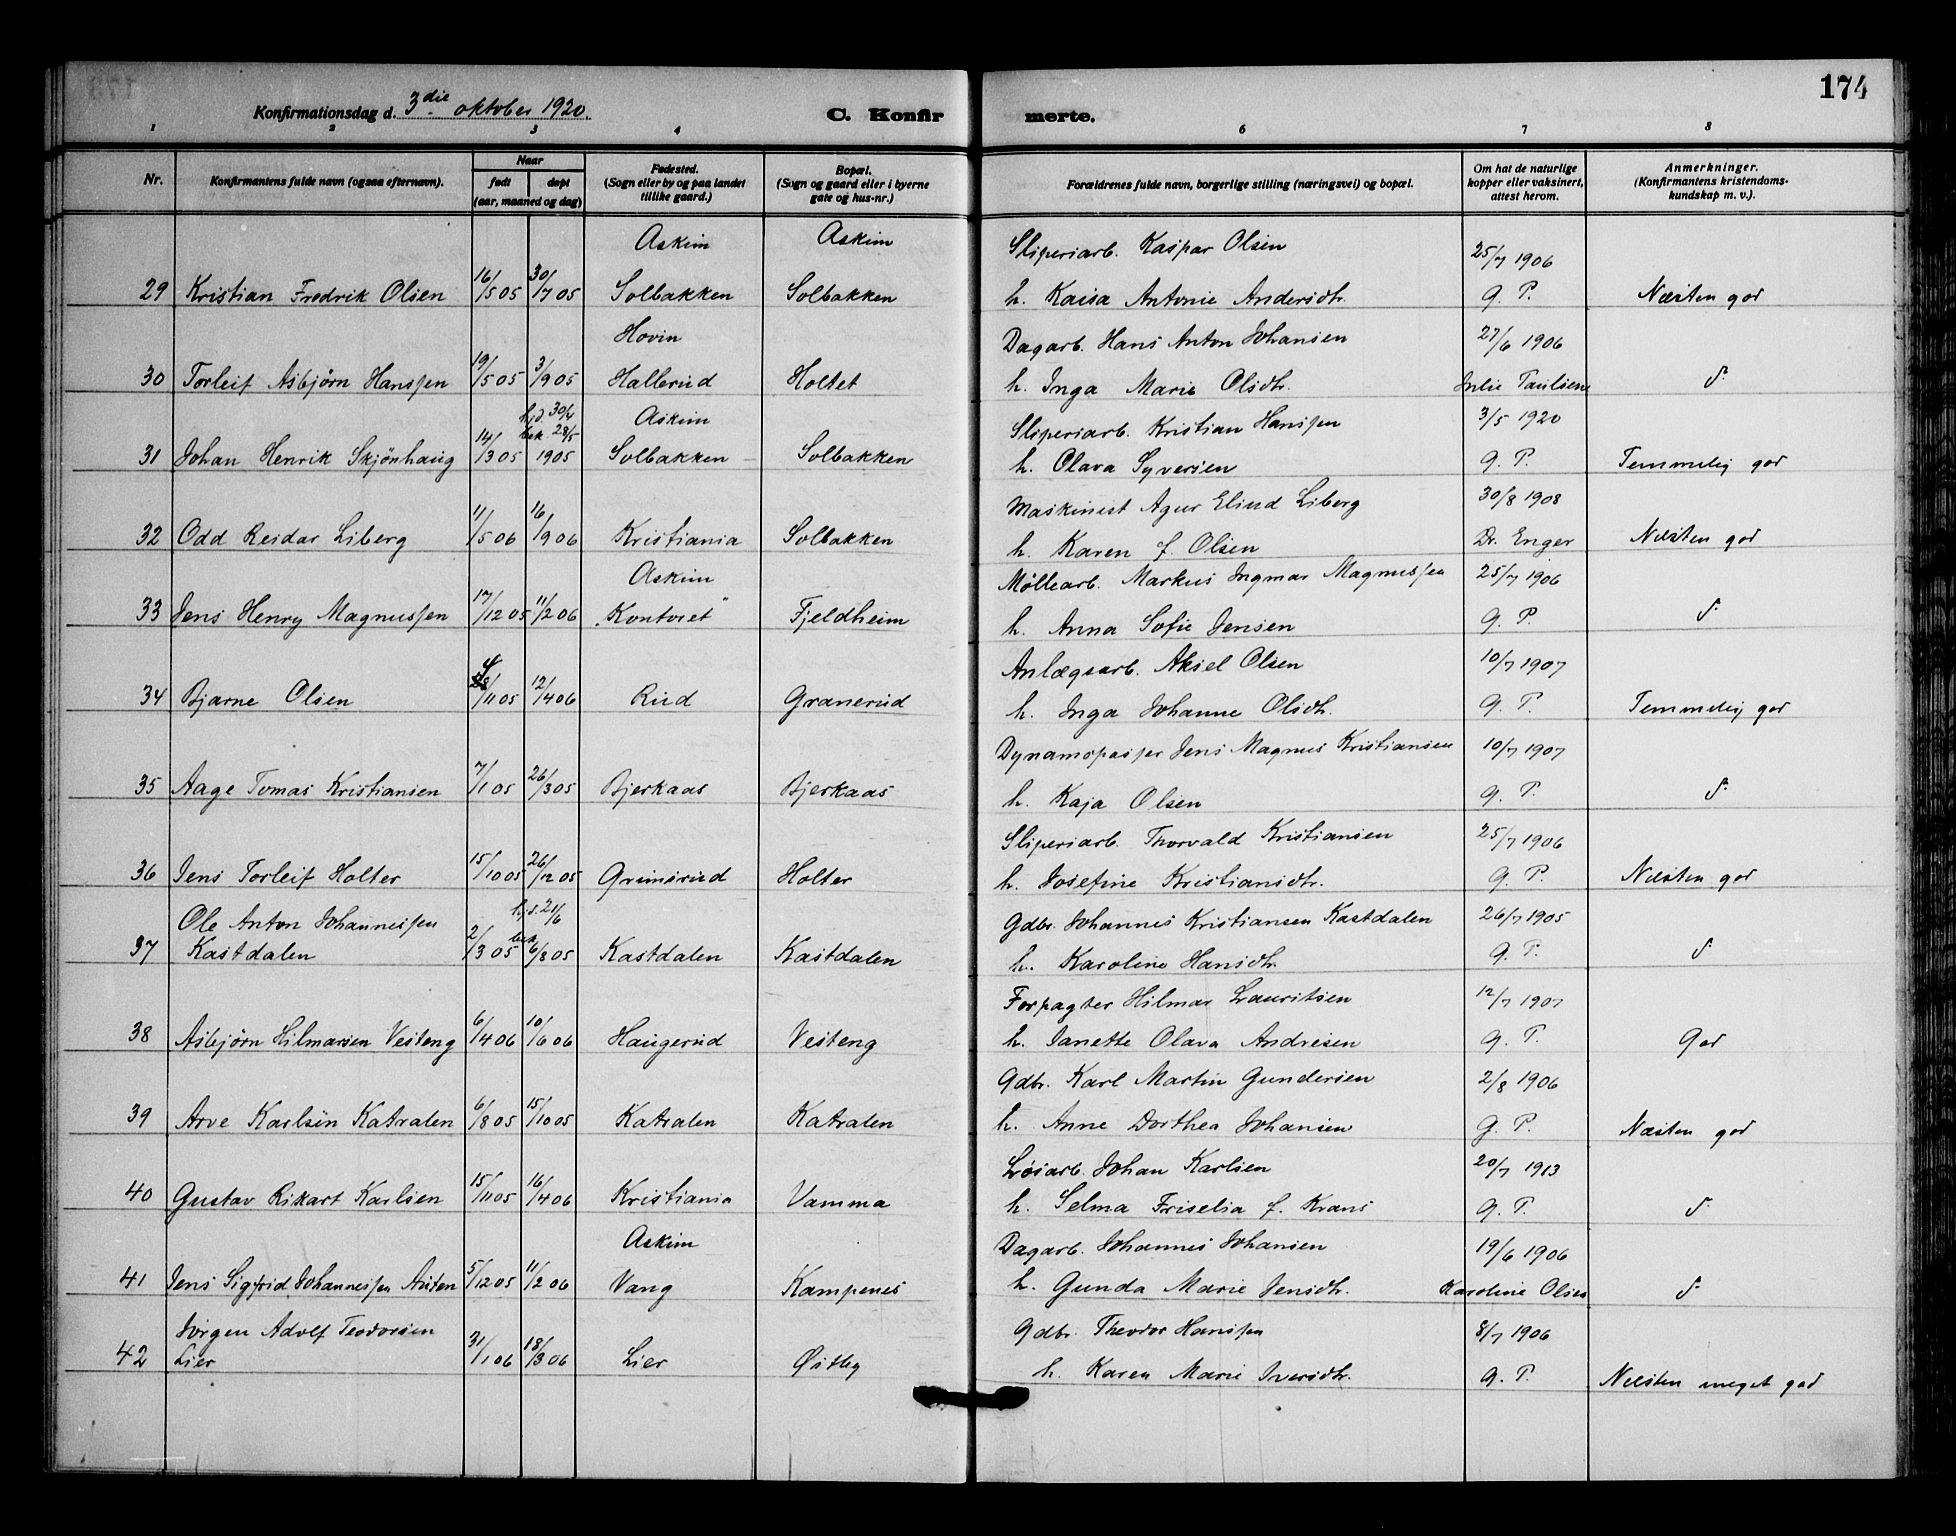 174
Konfirmationsdag d. 3die oktober 1920.
C. Konfirmerte.
1 2 3 4 6 7 8
Nr.
Konfirmantens fulde navn (ogsaa efternavn).
Naar
født døpt
(aar, maaned og dag)
Fødested.
(Sogn eller by og paa landet
tillike gaard.)
Bopæl.
(Sogn og gaard eller i byerne
gate og hus-nr.)
Forældrenes fulde navn, borgerlige stilling (næringsvei) og bopæl.
Om hat de naturlige
kopper eller vaksinert,
attest herom.
Anmerkninger.
(Konfirmantens kristendoms-
kundskap m. v.).
Askim Askim Sliperiarb. Kaspar Olsen 25/7 1906
29 Kristian Fredrik Olsen 16/5 05 30/7 05 Solbakken Solbakken h. Kaisa Antonie Andersdtr. G. P. Næsten god
Hovin Dagarb. Hans Anton Johansen 27/6 1906
30 Torleif Asbjørn Hanssen 19/5 05 3/9 05 Hallerud Holtet h. Inga Marie Olsdtr. Julie Paulsen d.
hjd. 30/4 Askim Sliperiarb. Kristian Hanssen 3/5 1920
bek. 28/5
31 Johan Henrik Skjønhaug 14/3 05 1905 Solbakken Solbakken h. Olava Syversen G. P. Temmelig god
Maskinist Agur Eliud Liberg 30/8 1908
32 Odd Reidar Liberg 11/5 06 16/9 06 Kristiania Solbakken h. Karen f. Olsen Dr. Enger Næsten god
Askim Møllearb. Markus Ingmar Magnussen 25/7 1906
33 Jens Henry Magnussen 17/12 05 11/2 06 „Kontoret" Fjeldheim h. Anna Sofie Jensen G. P. d.
Anlægsarb. Aksel Olsen 10/7 1907
34 Bjarne Olsen /11 05 12/4 06 Rud Granerud h. Inga Johanne Olsdtr. G. P. Temmelig god
Dynamopasser Jens Magnus Kristiansen 10/7 1907
35 Aage Tomas Kristiansen 7/1 05 26/3 05 Bjerkaas Bjerkaas h. Kaja Olsen G. P. d.
Sliperiarb. Thorvald Kristiansen 25/7 1906
36 Jens Torleif Holter 15/10 05 26/12 05 Grimsrud Holter h. Josefine Kristiansdtr. G. P. Næsten god
Ole Anton Johannessen hjd. 21/6 Gdbr. Johannes Kristiansen Kastdalen 26/7 1905
37 Kastdalen 2/3 05 bek. 6/8 05 Kastdalen Kastdalen h. Karoline Hansdtr. G. P. d.
Forpagter Hilmar Lauritsen 12/7 1907
38 Asbjørn Hilmarsen Vesteng 6/4 06 10/6 06 Haugerud Vesteng h. Janette Olava Andresen G. P. God
Gdbr. Karl Martin Gundersen 2/8 1906
39 Arve Karlsen Katralen 6/8 05 15/10 05 Katralen Katralen h. Anne Dorthea Johansen G. P. Næsten god
Løsarb. Johan Karlsen 20/7 1913
40 Gustav Rikart Karlsen 15/11 05 16/4 06 Kristiania Vamma h. Selma Friselia f. Krans G. P. d.
Askim Dagarb. Johannes Johansen 19/6 1906
41 Jens Sigfrid Johannessen Austen 5/12 05 11/2 06 Vang Kampenes h. Gunda Marie Jensdtr. Karoline Olsen d.
Jørgen Adolf Teodorsen Gdbr. Theodor Hanssen 8/7 1906
42 Lier 31/1 06 18/3 06 Lier Østby h. Karen Marie Iversdtr. G. P. Næsten meget god